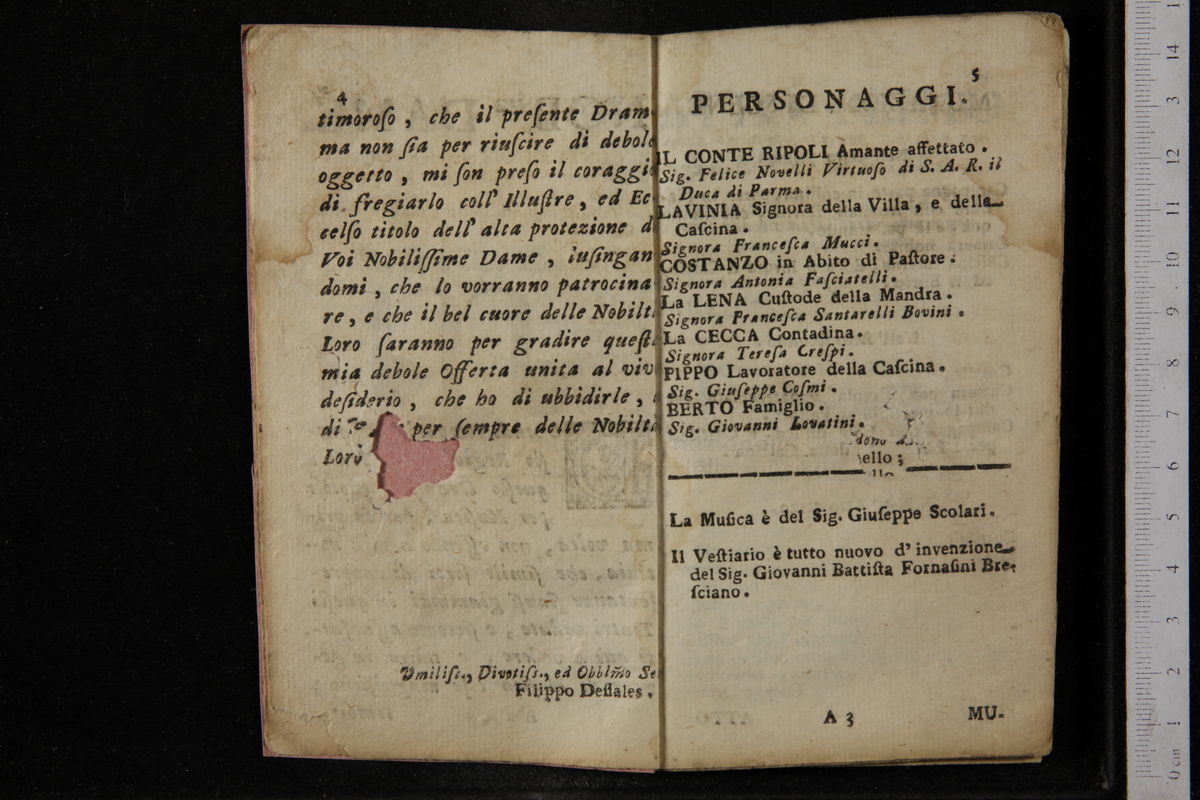 4
timoroſo, che il preſente Dram-
ma non ſia per riuſcire di debole
oggetto, mi ſon preſo il coraggi
di fregiarlo coll' Illuſtre, ed Ec
celſo titolo dell' alta protezione d
Voi Nobiliſſime Dame, luſingan
domi, che lo vorranno patrocina
re, e che il bel cuore delle Nobilt
Loro ſaranno per gradire queſt
mia debole Offerta unita al viv
deſiderio, che ho di ubbidirle,
di per ſempre delle Nobiltà
Loro
Umiliſs., Divotiſs., ed Obblm̃o Se
Filippo Deſſales.
5
PERSONAGGI.
IL CONTE RIPOLI Amante affettato.
Sig. Felice Novelli Virtuoſo di S. A. R. il
Duca di Parma.
LAVINIA Signora della Villa, e della
Caſcina.
Signora Franceſca Mucci.
COSTANZO in Abito di Paſtore.
Signora Antonia Faſciatelli.
La LENA Cuſtode della Mandra.
Signora Franceſca Santarelli Bovini.
La CECCA Contadina.
Signora Tereſa Creſpi.
PIPPO Lavoratore della Caſcina.
Sig. Giuſeppe Coſmi.
BERTO Famiglio.
Sig. Giovanni Lovatini.
ello;
La Muſica è del Sig. Giuſeppe Scolari.
Il Veſtiario è tutto nuovo d' invenzione
del Sig. Giovanni Battiſta Fornaſini Bre-
ſciano.
A 3
MU.
0 cm 1 2 3 4 5 6 7 8 9 10 11 12 3 14